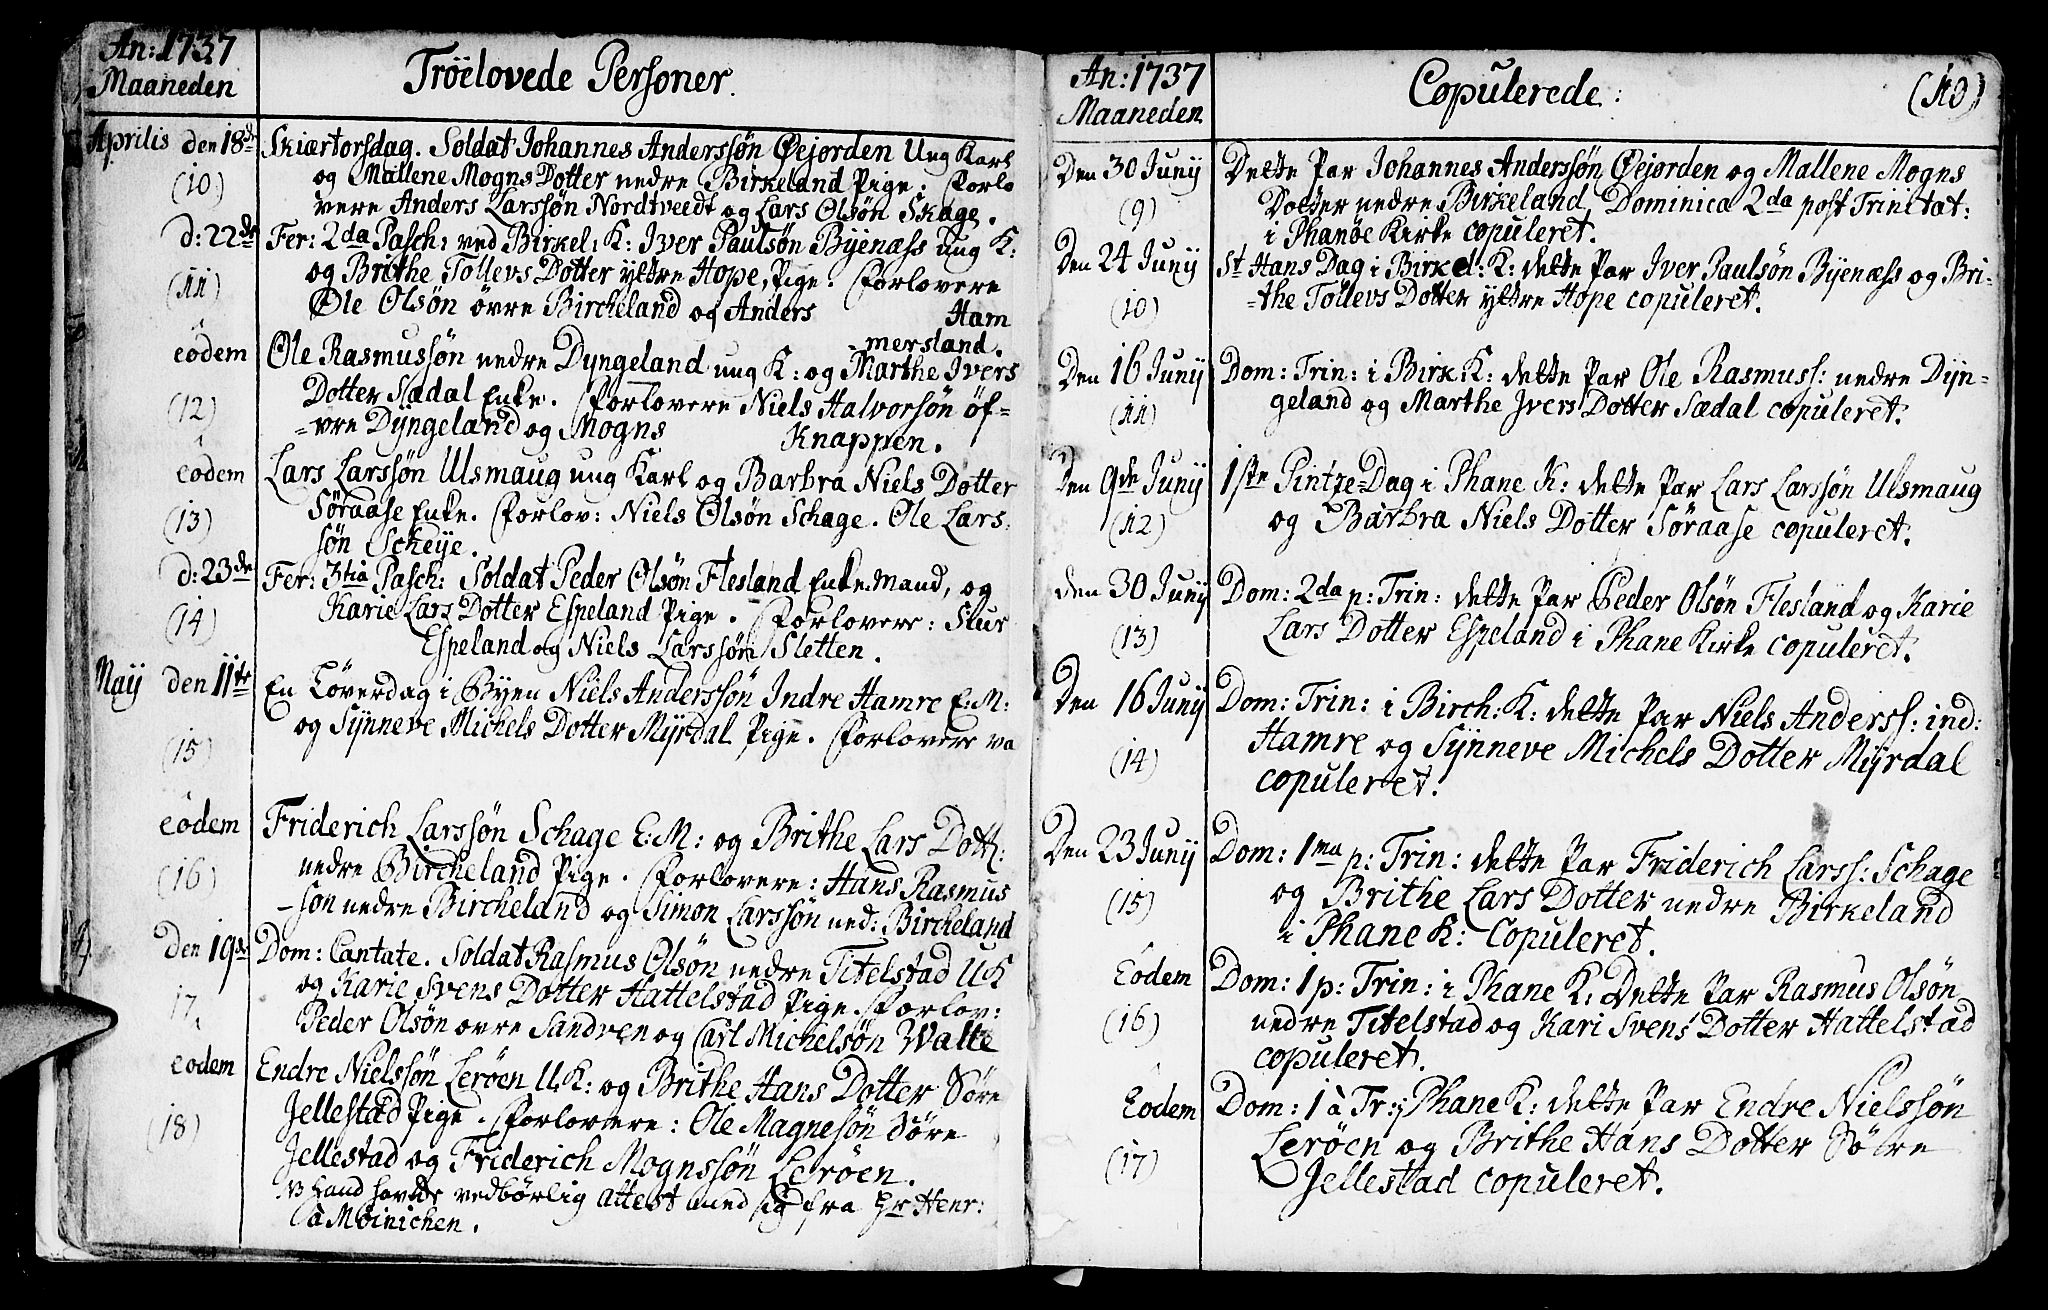 An: 1737
Maaneden
Tröelovede Personer.
Aprilis den 18de Skiærtorsdag. Soldat Johannes Anderssøn Øejorden Ung Karl
(10) og Mallene Mogns Dotter nedre Birkeland Pige. Forlo
vere Anders Larssøn Nordtveedt og Lars Olsøn Skage.
d: 22de Fer: 2da Pasch: ved Birkel: K: Iver Paulsøn Byenæss ung K:
(11) og Brithe Tollevs Dotter yttre Hope, Pige. Forlovere
Ole Olsøn övre Bircheland og Anders Ham
mersland.
eodem Ole Rasmussøn nedre Dyngeland ung K: og Marthe Ivers
(12) Dotter Sædal Enke. Forlovere Niels Halvorsøn öf=
=vre Dÿngeland og Mogns Knappen.
eodem Lars Larssøn Ulsmaug ung Karl og Barbra Niels Dotter
(13) Søraase Enke. Forlov: Niels Olsøn Schage. Ole Lars
søn Sckeÿe.
d: 23de Fer: 3tia Pasch: Soldat Peder Olsøn Flesland Enke Mand, og
(14) Karie Lars Dotter Espeland Pige. Forlovere: Siur
Espeland og Niels Larssøn Sletten.
Maij den 11te En Löverdag i Byen Niels Anderssøn Indre Hamre E: M:
(15) og Sÿnneve Michels Dotter Mÿrdal Pige. Forlovere va
eodem Friderich Larssøn Schage E: M: og Brithe Lars Dott:
(16) nedre Bircheland Pige. Forlovere: Hans Rasmus
-søn nedre Bircheland og Simon Larssøn ned: Bircheland
den 19de Dom: Cantate. Soldat Rasmus Olsøn nedre Titelstad U K
17. og Karie Svens Dotter Hattelstad Pige. Forlov:
Peder Olsøn ovre Sandven og Carl Michelsøn Walle
eodem Endre Nielssøn Lerøen U. K: og Brithe Hans Dotter Søre
(18) Jellestad Pige. Forlovere: Ole Magnesøn Søre
Jellestad og Friderich Mognssøn Lerøen.
NB hand havde vedbörlig attest med sig fra Hr Henr:
à Möinichen.
An: 1737
Maaneden
Copulerede:
(10)
Den 30 Junij Dette Par Johannes Anderssøn Øejorden og Mallene Mogns
(9) Dotter nedre Birkeland Dominica 2da post Trinitat:
i Phanøe Kirke copuleret.
Den 24 Junij St Hans Dag i Birkel: K: dette Par Iver Paulsøn Byenæss og Bri-
(10) -the Tollevs Dotter yttre Hope copuleret.
Den 16 Junij Dom: Trin: i Birk: K: dette Par Ole Rasmuss: nedre Dÿn-
(11) geland og Marthe Ivers Dotter Sædal copuleret.
Den 9de Junij 1ste Pintze-Dag i Phane K: dette Par Lars Larssøn Ulsmaug
(12) og Barbra Niels Dotter Søraase copuleret.
den 30 Junij Dom: 2da p: Trin: dette Par Peder Olsøn Flesland og Karie
(13) Lars Dotter Espeland i Phane Kirke copuleret.
Den 16 Junij Dom: Trin: i Birch: K: dette Par Niels Anderss: ind:
(14) Hamre og Sÿnneve Michels Dotter Mÿrdal
copuleret.
Den 23 Junij Dom: 1ma p: Trin: dette Par Friderich Larss: Schage
(15) og Brithe Lars Dotter nedre Birkeland
i Phane K: Copuleret.
Eodem Dom: 1 p: Trin: i Phane K: Dette Par Rasmus Olsøn
(16) nedre Titelstad og Kari Svens Dotter Hattelstad
copuleret.
Eodem Dom: 1 à Tr: i Phane K: dette Par Endre Nielssøn
(17) Lerøen og Brithe Hans Dotter Søre
Jellestad copuleret.